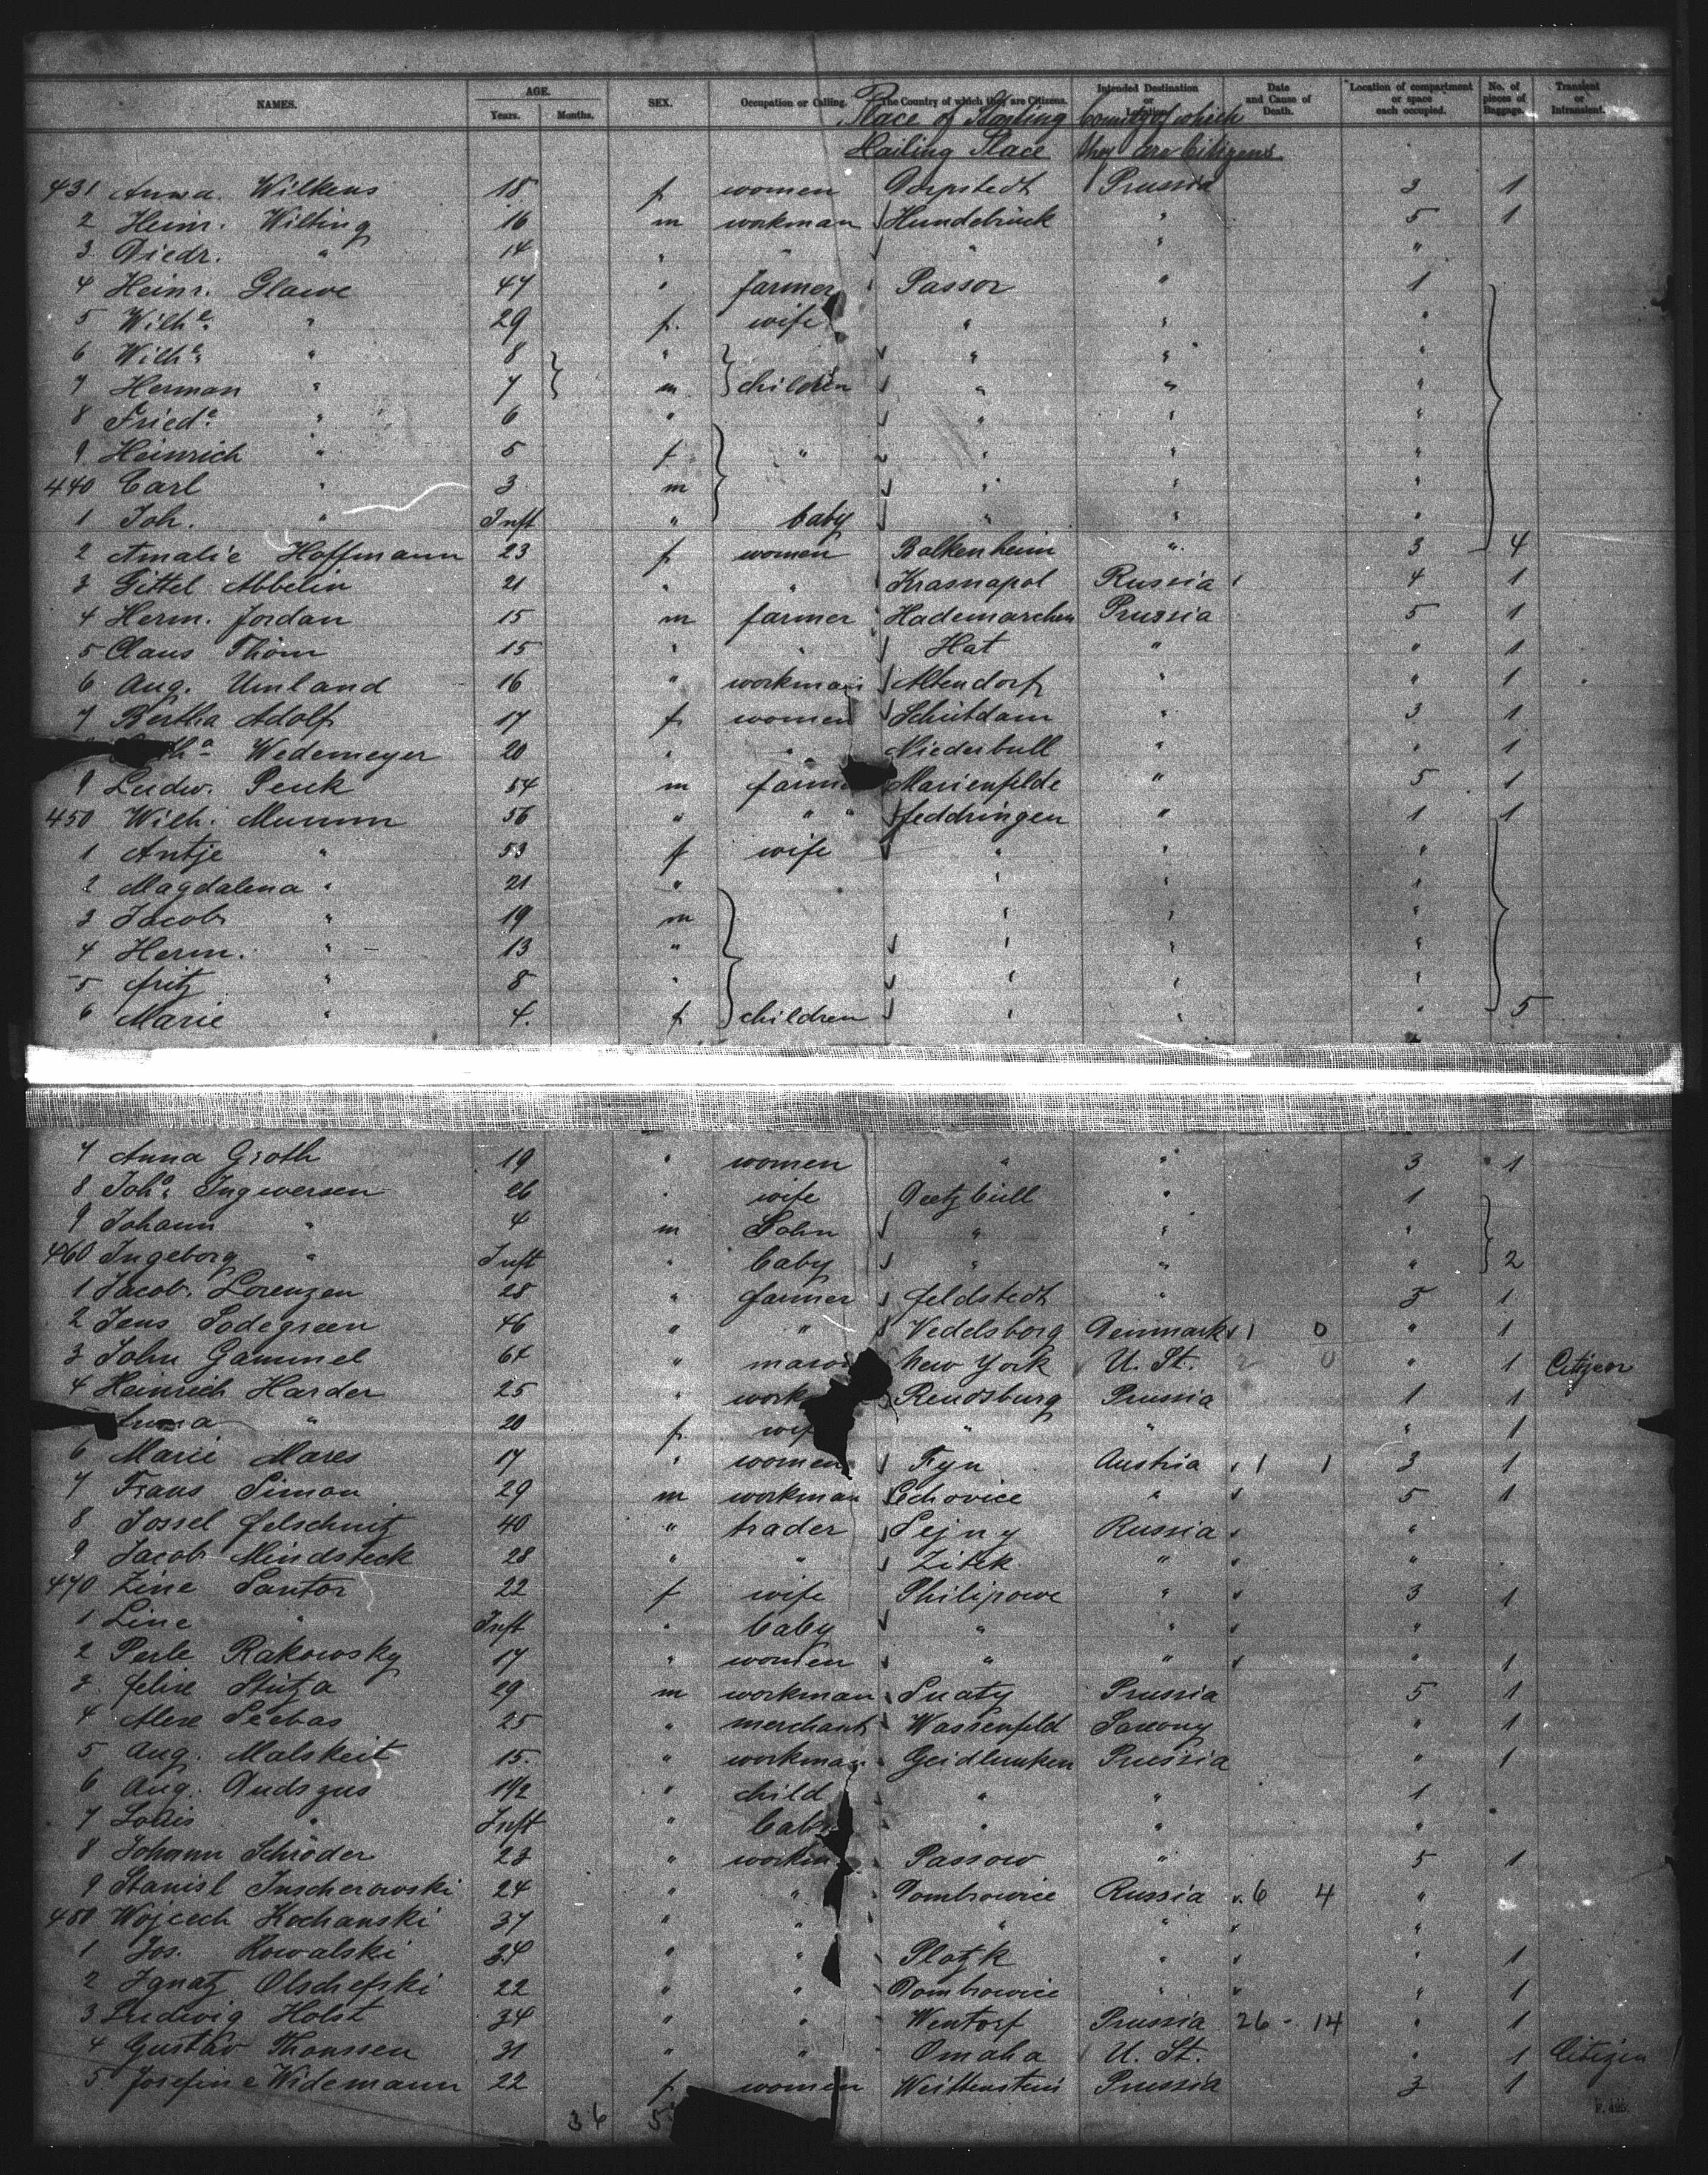 NAMES. AGE. Years. Months. SEX. Occupation or Calling. The Country of which they are Citizens. Intended Destination or Location. Date and Cause of Death. Location of compartment or space each occupied. No. of pieces of Baggage. Transient or Intransient.
Place of Starting Country of which
Hailing Place they are Citizens.
431 Anna Wilkens 18 f women Dorpstedt Prussia 3 1
2 Heinr. Wilting 16 m workman Hundebrück " 5 1
3 Diedr. " 14 " " " " "
4 Heinr. Glawe 47 " farmer Passor " 1
5 Wilhe. " 29 f. wife " " "
6 Wilhe. " 8 " " " "
7 Herman " 7 m children " " "
8 Friede. " 6 " " " "
9 Heinrich " 5 f " " " "
440 Carl " 3 m " " "
1 Joh. " Inft " baby " " "
2 Amalie Hoffmann 23 f women Bolkenheim " 3 4
3 Gittel Abbelin 21 " " Krasnapol Russia 4 1
4 Herm. Jordan 15 m farmer Hademarschen Prussia 5 1
5 Claus Thom 15 " " Hat " " 1
6 Aug. Umland 16 " workman Altendorf " " 1
7 Bertha Adolf 17 f women Schütdam " 3 1
Wedemeyer 20 " " Niederbull " " 1
9 Ludw. Penk 54 m farm Marienfelde " 5 1
450 Wilh. Mumm 56 " " " feddringen " 1 1
1 Antje " 53 f wife " " "
2 Magdalena " 21 " " " "
3 Jacob " 19 m " " "
4 Herm. " 13 " " " "
5 Fritz " 8 " " " "
6 Marie " 4. f children " " " 5
7 Anna Groth 19 " women " " 3 1
8 Joha. Ingwersen 26 " wife Deetzbüll " 1
9 Johann " 4 m Sohn " " "
460 Ingeborg " Inft " baby " " " 2
1 Jacob. Lorenzen 28 " farmer feldstedt " 5 1
2 Jens Sodegreen 46 " " Vedelsborg Denmark 1 0 " 1
3 John Gammel 64 " mason New York U. St. 2 0 " 1 Citizen
4 Heinrich Harder 25 " work Rendsburg Prussia 1 1
Anna " 20 f wif " " " 1
6 Marie Mares 17 " women Tyn Austria 1 1 3 1
7 Frans Simon 29 m workman Lechovice " 5 1
8 Jossel felschnitz 40 " trader Sejny Russia "
9 Jacob Mindsteck 28 " " Zitek " "
470 Zine Santor 22 f wife Philipowe " 3 1
1 Line " Inft " baby " " "
2 Perle Rakowsky 17 " women " " " 1
3 felix Stutza 29 m workman Suaty Prussia 5 1
4 Alex Seebas 25 " merchant Wassenfeld Saxony " 1
5 Aug. Malskeit 15. " workman Geidlunken Prussia " 1
6 Aug. Dudszus 1 1/2 " child " " 1
7 Louis " Inft " baby " " "
8 Johann Schröder 23 " workm Passow " 5 1
9 Stanisl Juscherowski 24 " " Dombrowice Russia 6 4 "
480 Wojcech Kochanski 37 " " " " "
1 Jos. Kowalski 34 " " Plotzk " " 1
2 Ignatz Olschefski 22 " " Dombrowice " " 1
3 Ludwig Holst 34 " " Wentorf Prussia 26 - 14 " 1
4 Gustav Thomssen 31 " " Omaha U. St. " 1 Citizen
5 Josefine Widemann 22 f women Weittenstein Prussia 3 1
36 5